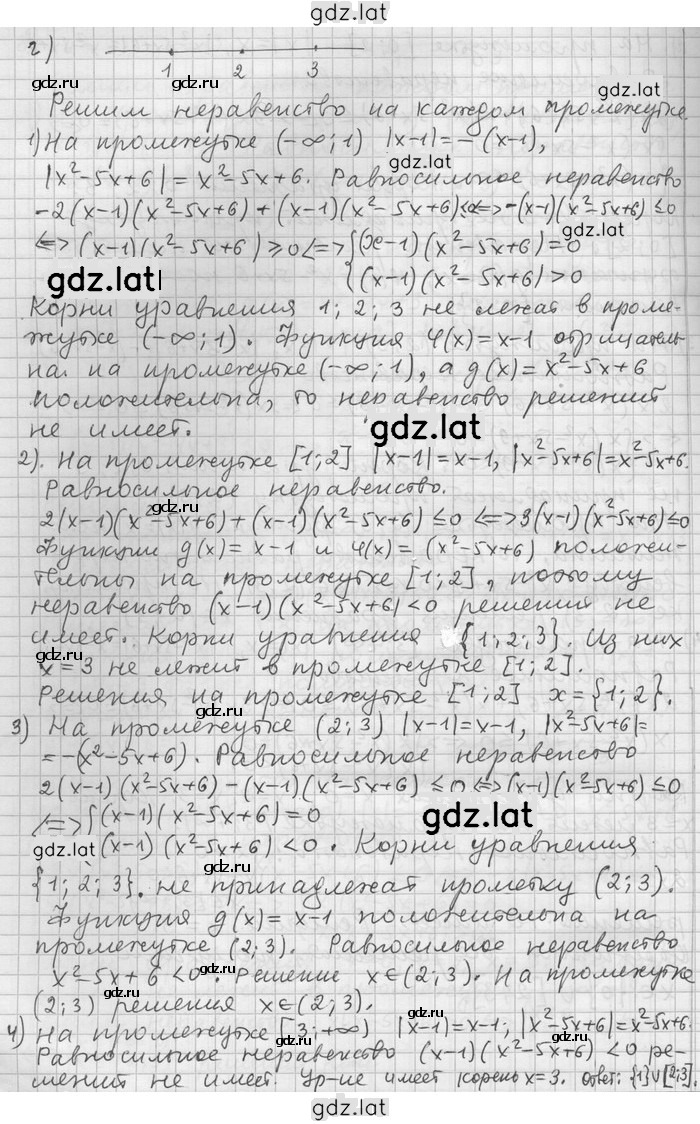 gdz.lat
2)
1 2 3
gdz.lat
gdz.lat
gdz.lat
Решим неравенство на каждом промежутке
1) На промежутке (-∞; 1) |x-1| = -(x-1),
gdz.lat
|x²-5x+6| = x²-5x+6. Равносильное неравенство
-2(x-1)(x²-5x+6) + (x-1)(x²-5x+6) ≤ 0 <=> -(x-1)(x²-5x+6) ≤ 0
<=> (x-1)(x²-5x+6) ≥ 0 <=> {(x-1)(x²-5x+6) = 0
gdz.lat
{(x-1)(x²-5x+6) > 0
Корни уравнения 1; 2; 3 не лежат в проме-
жутке (-∞; 1). Функция φ(x) = x-1 отрицатель-
на на промежутке (-∞; 1), а g(x) = x²-5x+6
положительна, то неравенство решений
не имеет.
gdz.lat
2). На промежутке [1; 2] |x-1| = x-1, |x²-5x+6| = x²-5x+6.
Равносильное неравенство.
gdz.lat
gdz.lat
2(x-1)(x²-5x+6) + (x-1)(x²-5x+6) ≤ 0 <=> 3(x-1)(x²-5x+6) ≤ 0
Функции g(x) = x-1 и φ(x) = (x²-5x+6) положи-
тельны на промежутке [1; 2], поэтому
неравенство (x-1)(x²-5x+6) < 0 решений не
имеет. Корни уравнения {1; 2; 3}. Из них
gdz.lat
gdz.lat
x = 3 не лежит в промежутке [1; 2].
Решения на промежутке [1; 2] x = {1; 2}.
gdz.lat
3) На промежутке (2; 3) |x-1| = x-1, |x²-5x+6| =
= -(x²-5x+6). Равносильное неравенство
2(x-1)(x²-5x+6) - (x-1)(x²-5x+6) ≤ 0 <=> (x-1)(x²-5x+6) ≤ 0
<=> {(x-1)(x²-5x+6) = 0
gdz.lat
gdz.lat
(x-1)(x²-5x+6) < 0. Корни уравнения
gdz.lat
{1; 2; 3}. не принадлежат прометку (2; 3).
Функция g(x) = x-1 положительна на
промежутке (2; 3). Равносильное неравенство
x²-5x+6 < 0. Решение x∈(2; 3). На промежутке
gdz.lat
gdz.lat
(2; 3) решения x∈(2; 3).
4) На промежутке [3; +∞) |x-1| = x-1; |x²-5x+6| = x²-5x+6.
gdz.lat
Равносильное неравенство (x-1)(x²-5x+6) < 0 ре-
шений не имеет. Ур-ие имеет корень x = 3. ответ: {1}∪[2;3].
gdz.lat
gdz.lat
gdz.lat